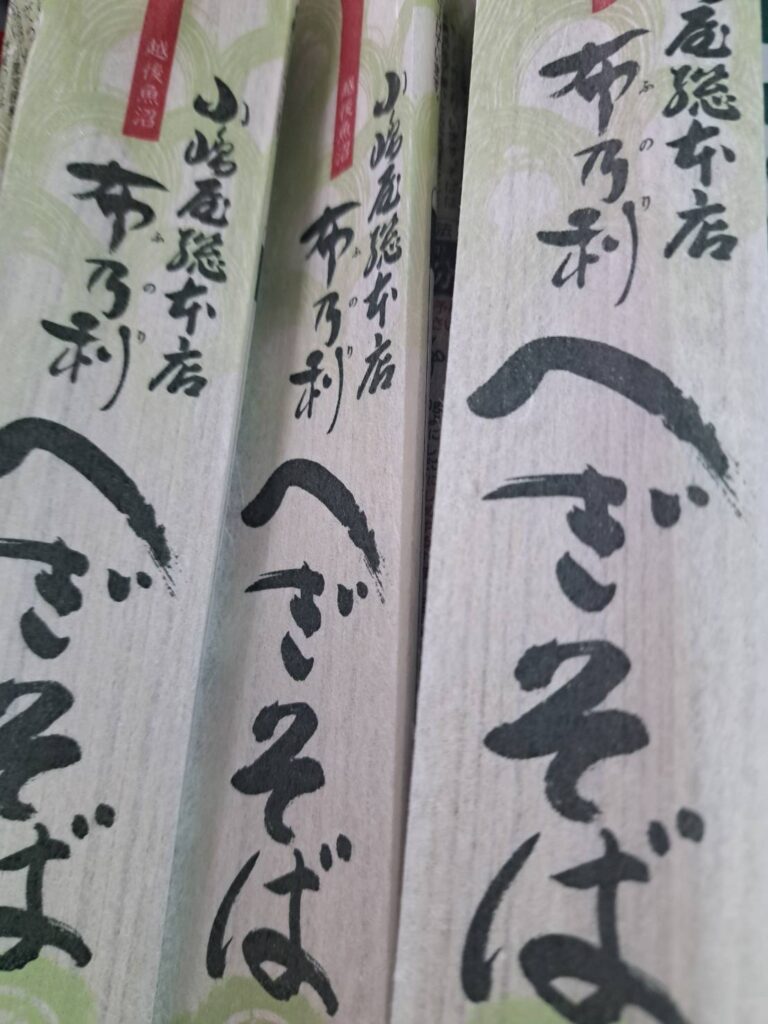 越後魚沼
小嶋屋総本店
布乃利
ふのり
へぎそば
越後魚沼
小嶋屋総本店
布乃利
ふのり
へぎそば
屋総本店
布乃利
ふのり
へぎそば